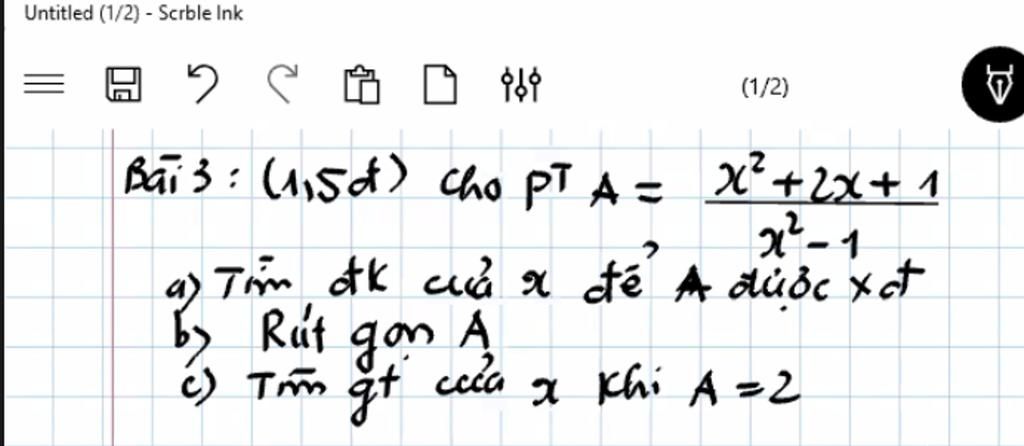 Untitled (1/2) - Scrble Ink
(1/2)
Bài 3 : (1,5đ) cho PT A = x²+2x+1 / x²-1
a) Tìm đk của x để A được xđ
b) Rút gọn A
c) Tìm gt của x khi A = 2